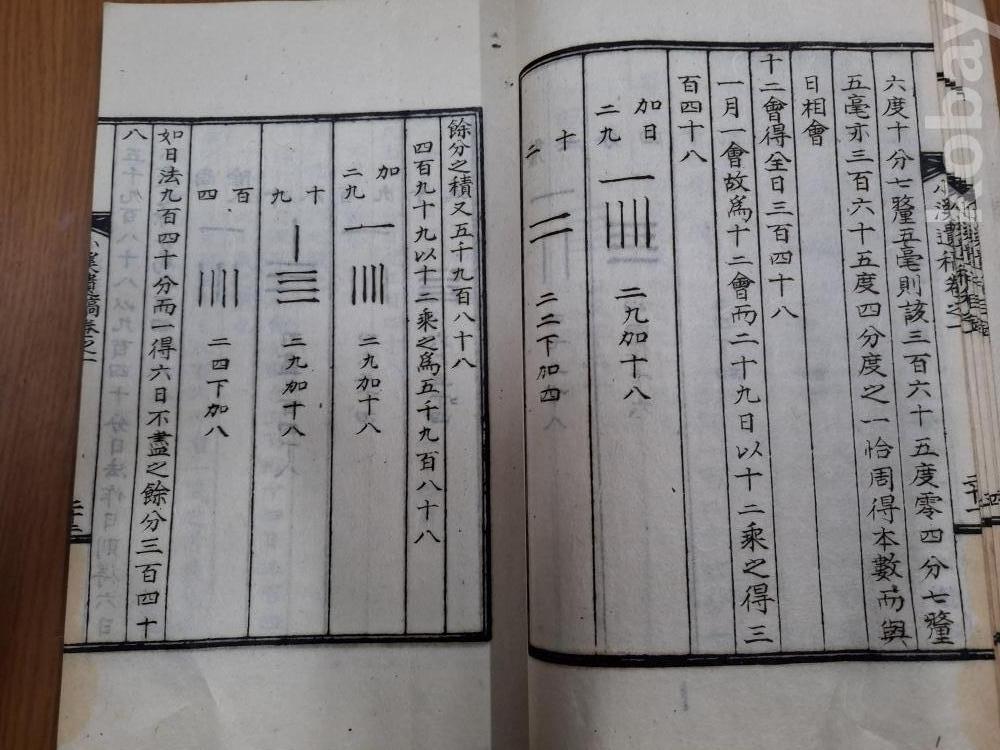 六度十分七釐五毫則該三百六十五度零四分七釐
五毫亦三百六十五度四分度之一恰周得本數而與
日相會
十二會得全日三百四十八
一月一會故爲十二會而二十九日以十二乘之得三
百四十八
加日
二九
二九加十八
十
二
二二下加四
餘分之積又五千九百八十八
四百九十九以十二乘之爲五千九百八十八
加
二九
二九加十八
十
九
二九加十八
百
四
二四下加八
如日法九百四十分而一得六日不盡之餘分三百四十
八
kobay